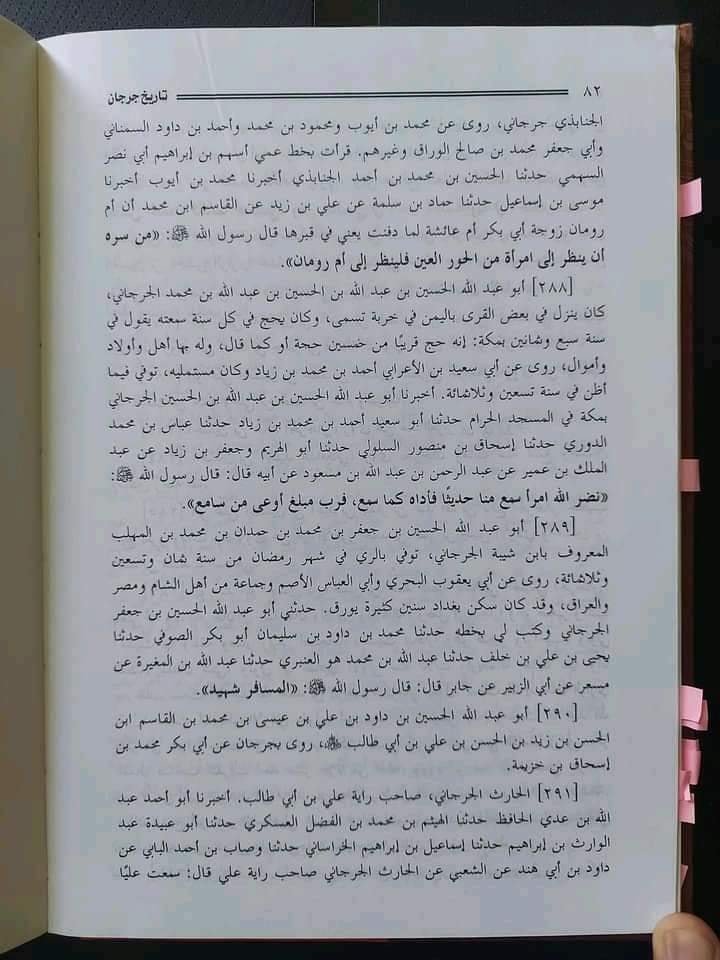 ٨٢ تاريخ جرجان
الجنابذي جرجاني، روى عن محمد بن أيوب ومحمود بن محمد وأحمد بن داود السمناني
وأبي جعفر محمد بن صالح الوراق وغيرهم. قرأت بخط عمي أسهم بن إبراهيم أبي نصر
السهمي حدثنا الحسين بن محمد بن أحمد الجنابذي أخبرنا محمد بن أيوب أخبرنا
موسى بن إسماعيل حدثنا حماد بن سلمة عن علي بن زيد عن القاسم ابن محمد أن أم
رومان زوجة أبي بكر أم عائشة لما دفنت يعني في قبرها قال رسول الله ﷺ: «من سره
أن ينظر إلى امرأة من الحور العين فلينظر إلى أم رومان».
[٢٨٨] أبو عبد الله الحسين بن عبد الله بن الحسين بن عبد الله بن محمد الجرجاني،
كان ينزل في بعض القرى باليمن في خربة تسمى، وكان يحج في كل سنة سمعته يقول في
سنة سبع وثمانين بمكة: إنه حج قريبًا من خمسين حجة أو كما قال، وله بها أهل وأولاد
وأموال، روى عن أبي سعيد بن الأعرابي أحمد بن محمد بن زياد وكان مستمليه، توفي فيما
أظن في سنة تسعين وثلاثمائة. أخبرنا أبو عبد الله الحسين بن عبد الله بن الحسين الجرجاني
بمكة في المسجد الحرام حدثنا أبو سعيد أحمد بن محمد بن زياد حدثنا عباس بن محمد
الدوري حدثنا إسحاق بن منصور السلولي حدثنا أبو الهريم وجعفر بن زياد عن عبد
الملك بن عمير عن عبد الرحمن بن عبد الله بن مسعود عن أبيه قال: قال رسول الله ﷺ:
«نضر الله امرأ سمع منا حديثًا فأداه كما سمع، فرب مبلغ أوعى من سامع».
[٢٨٩] أبو عبد الله الحسين بن جعفر بن محمد بن حمدان بن محمد بن المهلب
المعروف بابن شيبة الجرجاني، توفي بالري في شهر رمضان من سنة ثمان وتسعين
وثلاثمائة، روى عن أبي يعقوب البحري وأبي العباس الأصم وجماعة من أهل الشام ومصر
والعراق، وقد كان سكن بغداد سنين كثيرة يورق. حدثني أبو عبد الله الحسين بن جعفر
الجرجاني وكتب لي بخطه حدثنا محمد بن داود بن سليمان أبو بكر الصوفي حدثنا
يحيى بن علي بن خلف حدثنا عبد الله بن محمد هو العنبري حدثنا عبد الله بن المغيرة عن
مسعر عن أبي الزبير عن جابر قال: قال رسول الله ﷺ: «المسافر شهيد».
[٢٩٠] أبو عبد الله الحسين بن داود بن علي بن عيسى بن محمد بن القاسم ابن
الحسن بن زيد بن الحسن بن علي بن أبي طالب، روى بجرجان عن أبي بكر محمد بن
إسحاق بن خزيمة.
[٢٩١] الحارث الجرجاني، صاحب راية علي بن أبي طالب. أخبرنا أبو أحمد عبد
الله بن عدي الحافظ حدثنا الهيثم بن محمد بن الفضل العسكري حدثنا أبو عبيدة عبد
الوارث بن إبراهيم حدثنا إسماعيل بن إبراهيم الخراساني حدثنا وصاب بن أحمد البابي عن
داود بن أبي هند عن الشعبي عن الحارث الجرجاني صاحب راية علي قال: سمعت عليًا